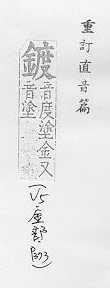 重訂直音篇
鍍
音度塗金又
音塗
(V5金部